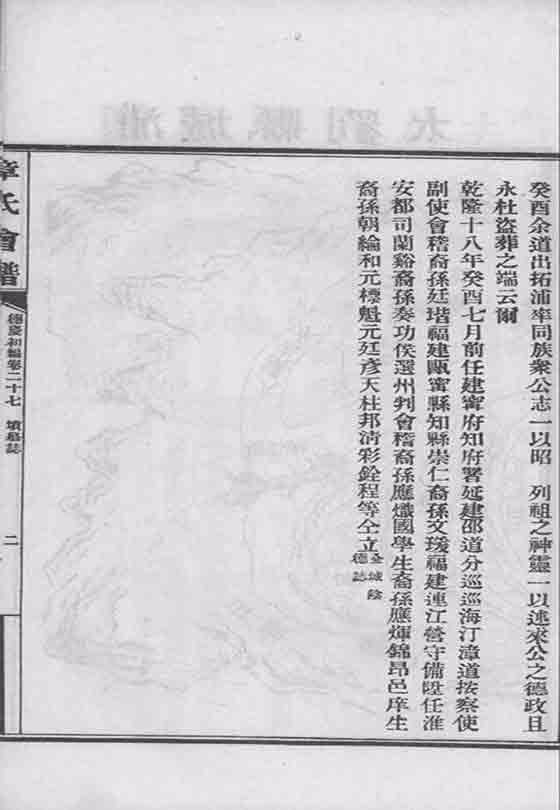 癸酉余道出拓浦率同族衆公志一以昭　列祖之神靈一以述來公之德政且
永杜盜葬之端云爾
乾隆十八年癸酉七月前任建寧府知府署延建邵道分巡巡海汀漳道按察使
副使會稽裔孫廷瑎福建甌寧縣知縣崇仁裔孫文瑗福建連江營守備陞任淮
安都司蘭谿裔孫奏功侯選州判會稽裔孫應熾國學生裔孫應煇錦昂邑庠生
裔孫朝綸和元標魁元廷彥天杜邦淸彩銓程等仝立
金城陰
德誌
章氏會譜
德慶初編卷二十七　墳墓誌
二